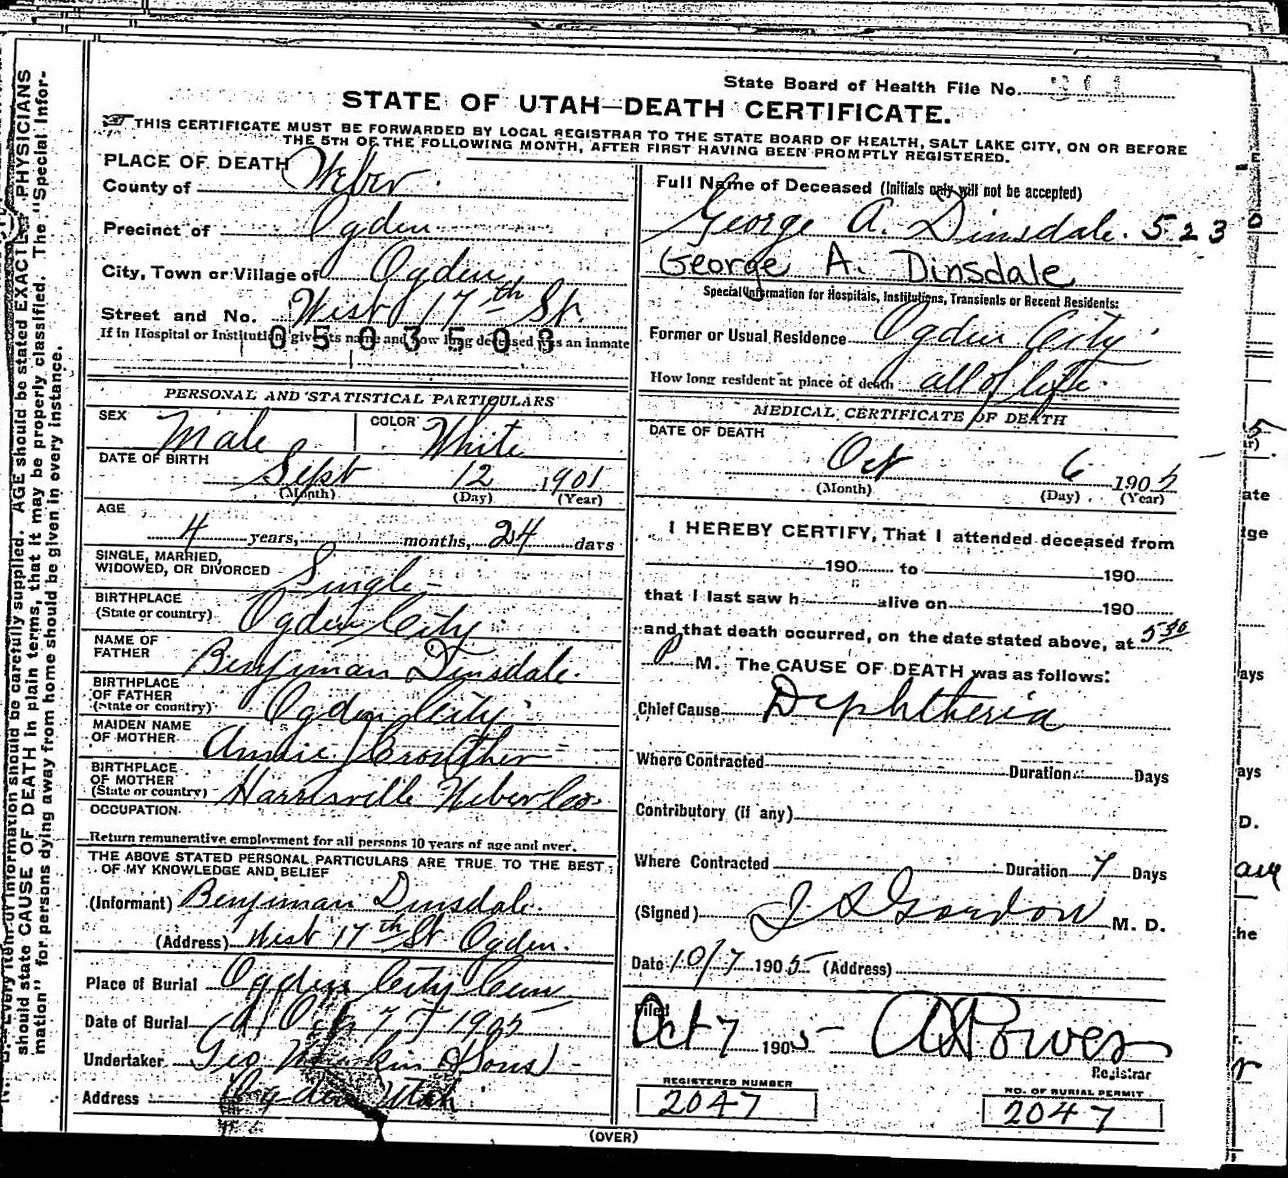 State Board of Health File No.
STATE OF UTAH—DEATH CERTIFICATE.
THIS CERTIFICATE MUST BE FORWARDED BY LOCAL REGISTRAR TO THE STATE BOARD OF HEALTH, SALT LAKE CITY, ON OR BEFORE
THE 5TH OF THE FOLLOWING MONTH, AFTER FIRST HAVING BEEN PROMPTLY REGISTERED.
PLACE OF DEATH
County of Weber
Precinct of Ogden
City, Town or Village of Ogden
Street and No. West 17th St.
If in Hospital or Institution, give its name and how long deceased was an inmate
0503503
PERSONAL AND STATISTICAL PARTICULARS
SEX Male COLOR White
DATE OF BIRTH
Sept 12 1901
(Month) (Day) (Year)
AGE
4 years, months, 24 days
SINGLE, MARRIED,
WIDOWED, OR DIVORCED Single
BIRTHPLACE
(State or country) Ogden City
NAME OF
FATHER Benjiman Dinsdale.
BIRTHPLACE
OF FATHER
(State or country) Ogden City
MAIDEN NAME
OF MOTHER Annie Crowther
BIRTHPLACE
OF MOTHER
(State or country) Harrisville Weber Co.
OCCUPATION
Return remunerative employment for all persons 10 years of age and over.
THE ABOVE STATED PERSONAL PARTICULARS ARE TRUE TO THE BEST
OF MY KNOWLEDGE AND BELIEF
(Informant) Benjiman Dinsdale.
(Address) West 17th St Ogden.
Place of Burial Ogden City Cem
Date of Burial Oct 7 1905
Undertaker Geo & Sons
Address Ogden Utah
Full Name of Deceased (Initials only will not be accepted)
George A. Dinsdale. 523
George A. Dinsdale
Special Information for Hospitals, Institutions, Transients or Recent Residents:
Former or Usual Residence Ogden City
How long resident at place of death all of life.
MEDICAL CERTIFICATE OF DEATH
DATE OF DEATH
Oct 6 1905
(Month) (Day) (Year)
I HEREBY CERTIFY, That I attended deceased from
190 to 190
that I last saw h alive on 190
and that death occurred, on the date stated above, at 5 30
P M. The CAUSE OF DEATH was as follows:
Chief Cause Diphtheria
Where Contracted Duration Days
Contributory (if any)
Where Contracted Duration 7 Days
(Signed) Gordon M. D.
Date 10/7 1905 (Address)
Filed
Oct 7 1905 Powers
Registrar
REGISTERED NUMBER
2047
NO. OF BURIAL PERMIT
2047
(OVER)
Every item of information should be carefully supplied. AGE should be stated EXACTLY. PHYSICIANS
should state CAUSE OF DEATH in plain terms, that it may be properly classified. The "Special Infor-
mation" for persons dying away from home should be given in every instance.